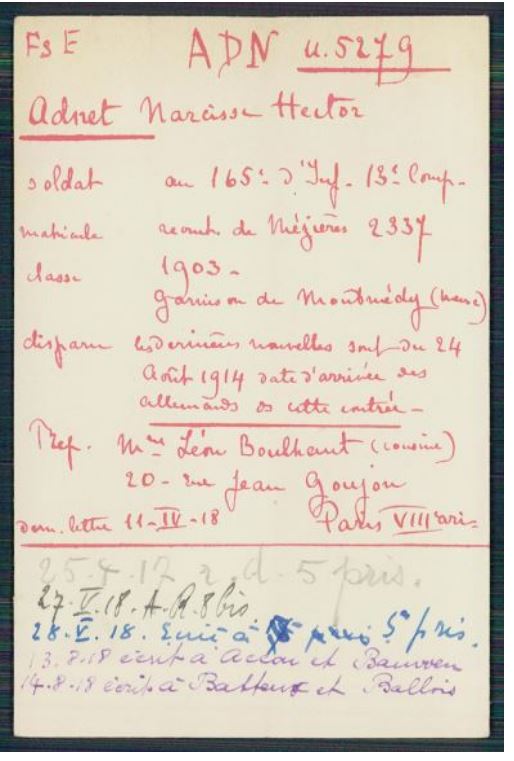 Fs E ADN u.5279
Adnet Narcisse Hector
soldat au 165e d'Inf. 13e Comp.
matricule recrut. de Mézières 2337
classe 1903 -
garnison de Montmédy (Meuse)
disparu les dernières nouvelles sont du 24
Août 1914 date d'arrivée des
allemands ds cette contrée -
Mme Léon Boulhaut (cousine)
20 - rue Jean Goujon
dern. lettre 11-IV-18 Paris VIII arr.
25.4.17 r.d. 5 pris.
27.V.18. A.R. 8 bis
28.V.18. Ecrit à 5 pris.
13.8.18 écrit à Accou et Bauwen
14.8.18 écrit à Batteux et Ballois